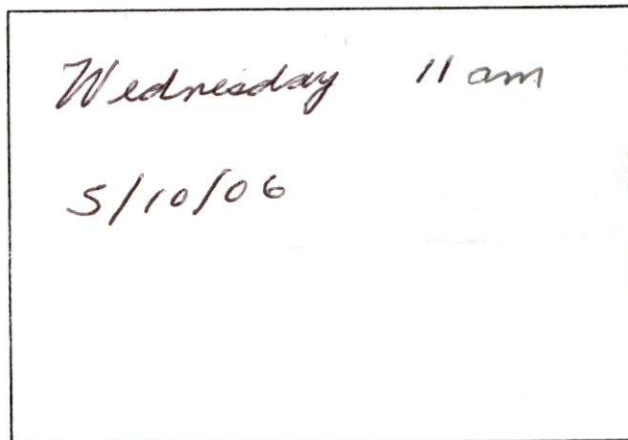 Wednesday 11 am
5/10/06